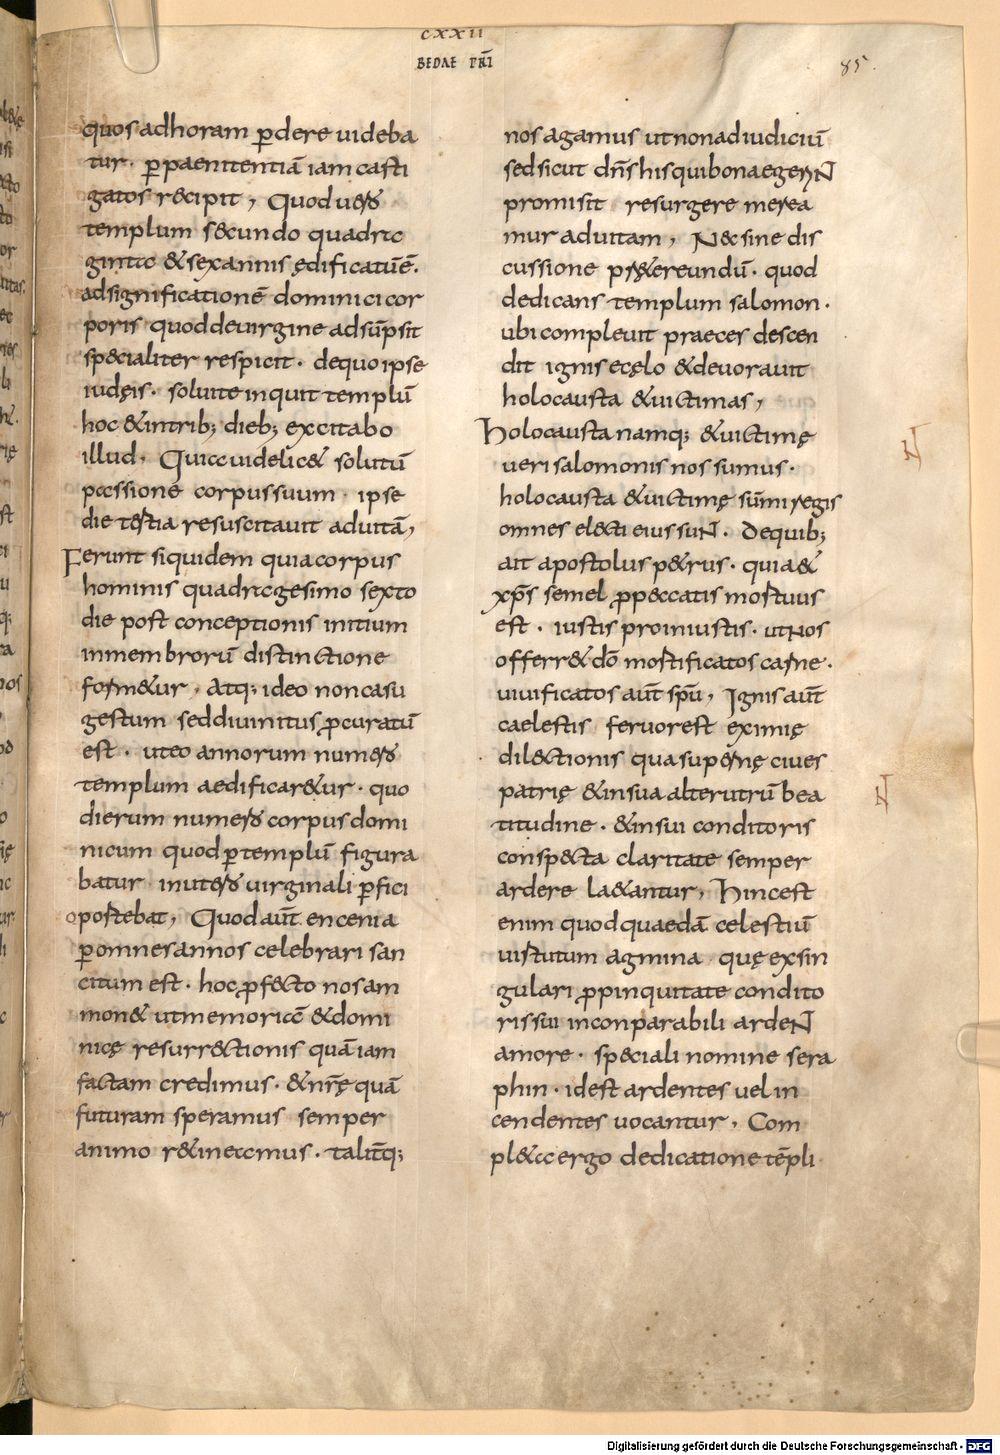 CXXII
BEDAE PRĪ
85.
quos adhoram ꝑdere uideba
tur · ꝑpaenitentiā iam casti
gatos r&cipit, Quod uero
templum secundo quadra
ginta &sexannis ędificatūē.
adsignificationē dominici cor
poris quod deuirgine adsūpsit
specialiter respicit · dequo ipse
iudęis · soluite inquit templū
hoc &intrib; dieb; excitabo
illud. Quia uidelic& solutū
passione corpus suum · ipse
die tertia resuscitauit aduitā,
Ferunt siquidem quia corpus
hominis quadragesimo sexto
die post conceptionis initium
inmembrorū distinctione
form&ur, Atq; ideo non casu
gestum sed diuinitus ꝓcuratū
est · uteo annorum numero
templum aedificar&ur · quo
dierum numero corpus domi
nicum quod ꝑtemplū figura
batur inutero uirginali ꝑfici
oportebat, Quod aūt encenia
ꝑomnes annos celebrari san
citum est · hoc ꝓfecto nos am
mon& utmemoria &domi
nicę resurrectionis quā iam
factam credimus · &nr̄ę quā
futuram speramus semper
animo r&ineamus · talitq;
nos agamus ut non adiudiciū
sed sicut dn̄s his quibona egeruNt
promisit resurgere merea
mur aduitam, Nec sine dis
cussione pr&ereundū · quod
dedicans templum salomon ·
ubi compleuit praeces descen
dit ignis ecęlo &deuorauit
holocausta &uictimas,
Holocausta namq; &uictimę
ueri salomonis nos sumus ·
holocausta &uictimę sūmi regis
omnes electi eius suNt · Dequib;
ait apostolus p&rus · quia &
xp̄s semel ꝓpeccatis mortuus
est · iustis pro iniustis · utNos
offerr& dō mortificatos carne ·
uiuificatos aūt spū, Ignis aūt
caelestis feruor est eximię
dilectionis qua supernę ciues
patrię &insua alterutrū bea
titudine · &insui conditoris
conspecta claritate semper
ardere la&antur, Hinc est
enim quod quaedā celestiū
uirtutum agmina quę exsin
gulari ꝓpinquitate condito
ris sui inconparabili ardeNt
amore · speciali nomine sera
phin · idest ardentes uel in
cendentes uocantur, Com
pl&a ergo dedicatione tēpli
Digitalisierung gefördert durch die Deutsche Forschungsgemeinschaft - DFG